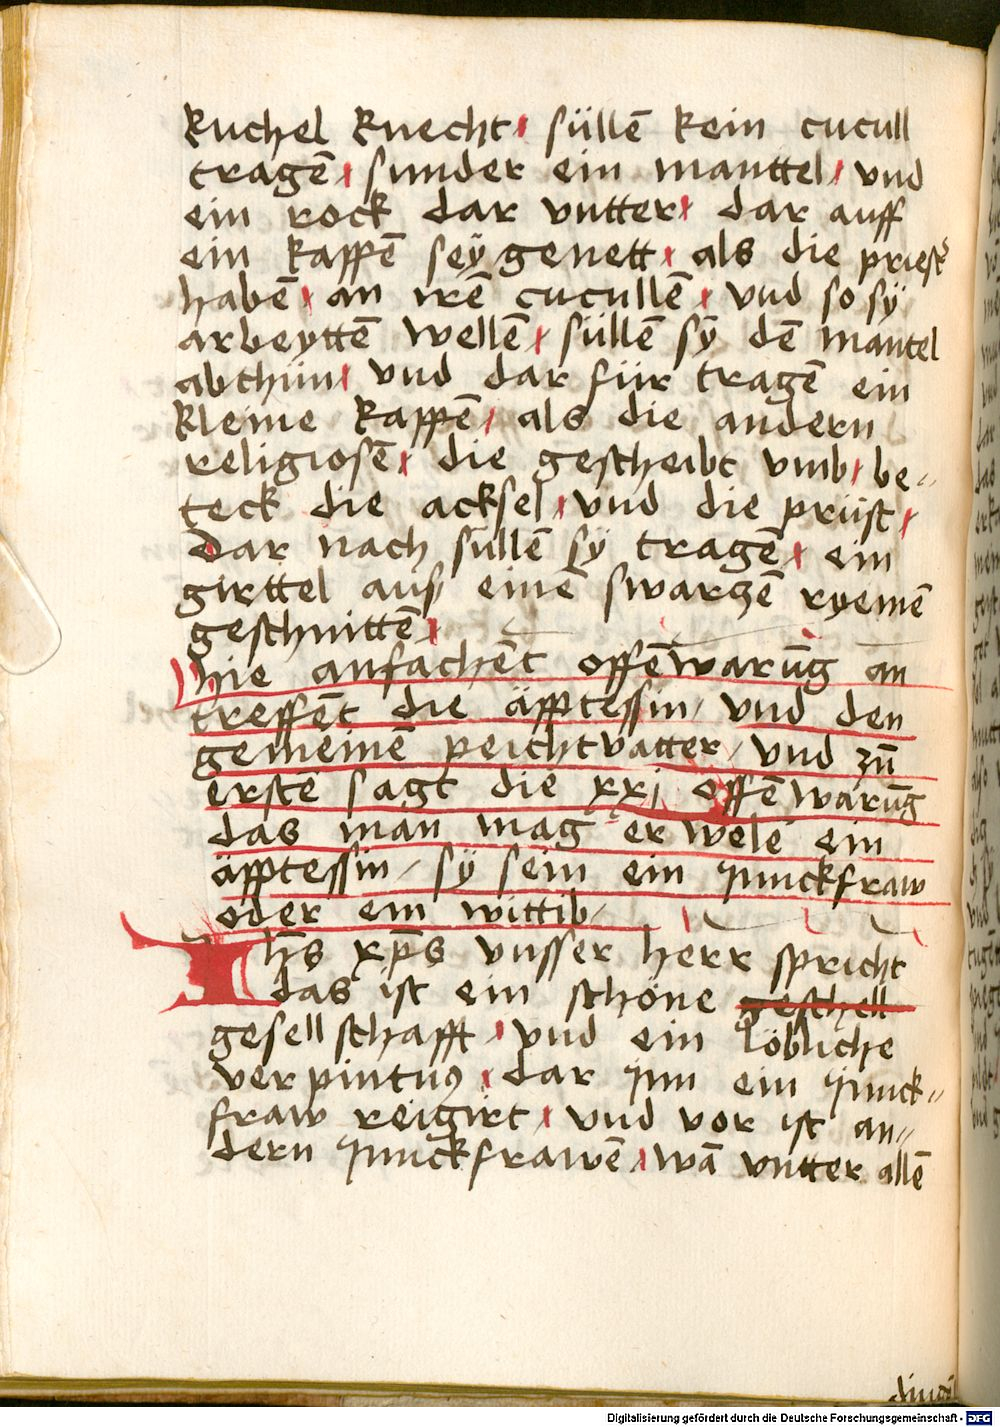 kuchel knecht / süllē kein cucull
tragē / sunder ein manttel / vnd
ein rock dar vntter / dar auff
ein kappē sey genett / als die priest̄s
habē / an irē cucullē / vnd so sÿ
arbeyttē wellē / süllē sÿ dē mantel
abthün / vnd dar für tragē ein
kleine kappē / als die andern
religiosē / die gescheibt vmb / be-
teck die acksel / vnd die prüst /
dar nach süllē sÿ tragē / ein
girttel aus einē swarzē ryemē
geschnittē /
hie anfachēt offēwarūg an
treffēt die äpptessin / vnd den
gemeinē peichtvatter / vnd zū
erstē sagt die xxj offēwarūg
das man mag erwelē ein
äpptessin / sÿ sein ein junckfraw
oder ein wittib /
Ihs̄ xp̄s vnsser herr spricht
das ist ein schöne geschell
gesellschafft / vnd ein löbliche
verpintnus / dar jnn ein junck-
fraw reigirt / vnd vor ist an-
dern junckfrawē / wā vntter allē
Digitalisierung gefördert durch die Deutsche Forschungsgemeinschaft - DFG